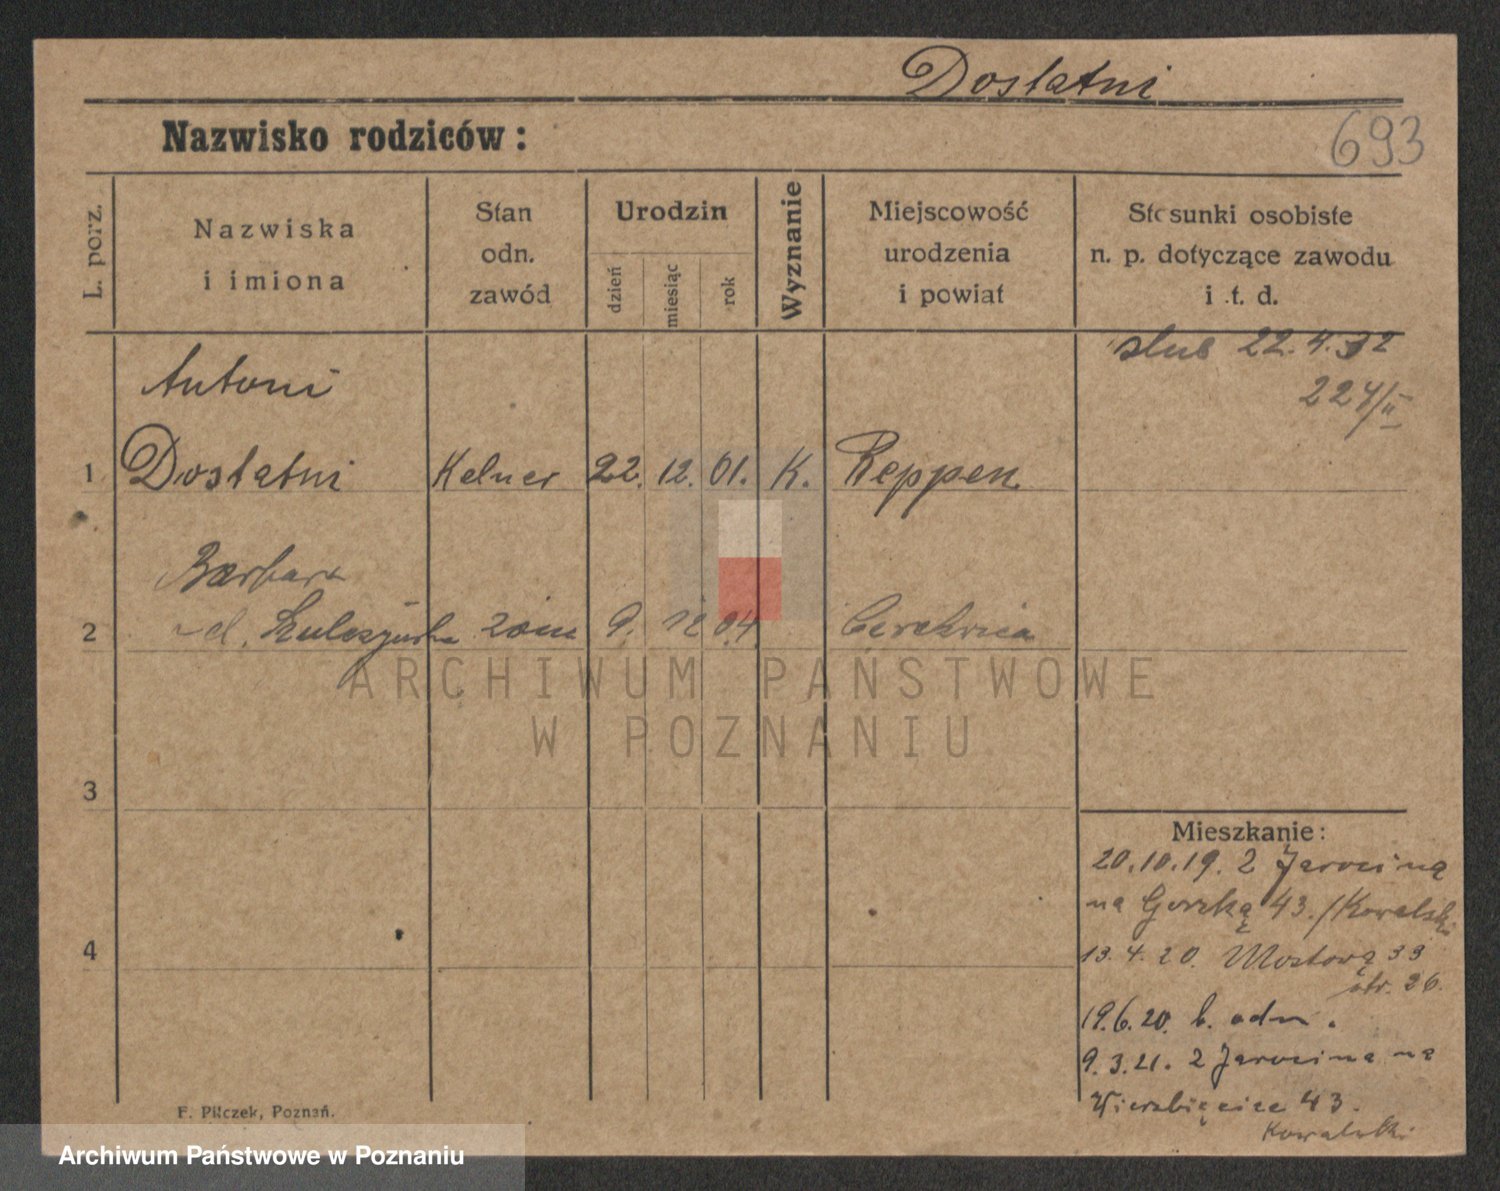 Dostatni
Nazwisko rodziców:
693
L. porz.
Nazwiska
i imiona
Stan
odn.
zawód
Urodzin
dzień
miesiąc
rok
Wyznanie
Miejscowość
urodzenia
i powiat
Stosunki osobiste
n. p. dotyczące zawodu
i t. d.
ślub 22.4.32
224/II
Antoni
1 Dostatni Kelner 22. 12. 01. K. Reppen
Barbara
2 d. 9. 12 04 Cerekwica
ARCHIWUM PAŃSTWOWE
W POZNANIU
3
Mieszkanie:
20.10.19. z Jarocina
na Gorską 43. /Kowalski
4
13.4.20. Mostową 33
str. 26.
19.6.20. b. odm.
9.3.21. z Jarocina na
Wierzbięcice 43.
Kowalski
F. Pilczek, Poznań.
Archiwum Państwowe w Poznaniu